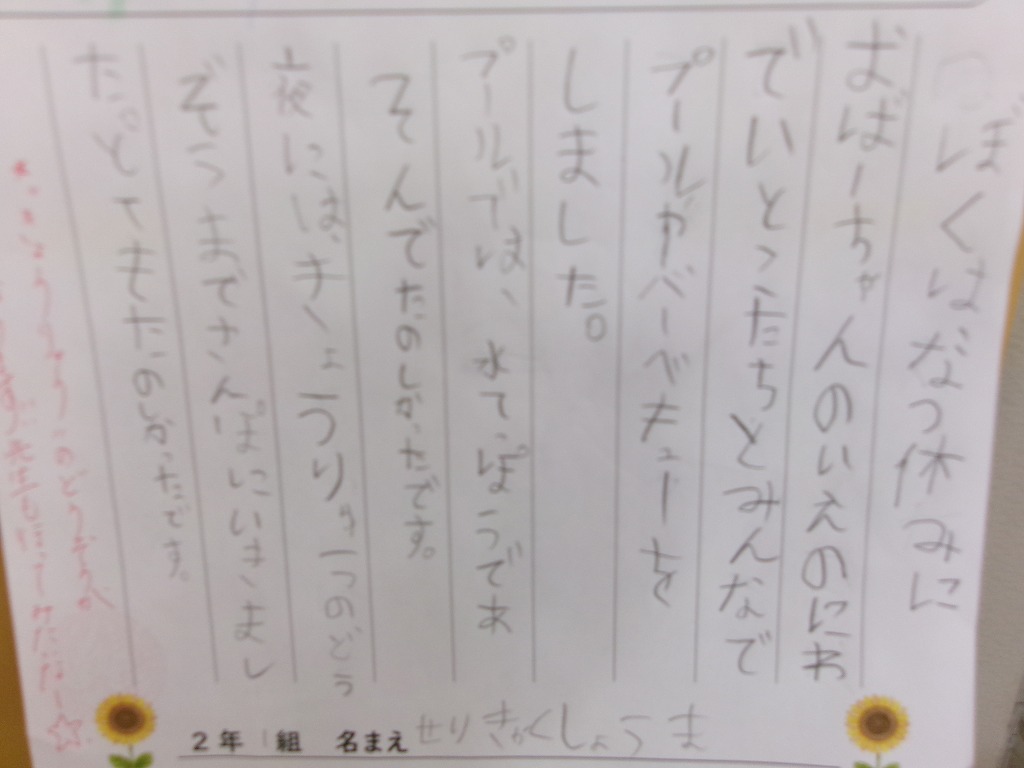 ぼくはなつ休みに
おばーちゃんのいえのにわ
でいとこたちとみんなで
プールやバーベキューを
しました。
プールでは、水てっぽうであ
そんでたのしかったです。
夜には、きょうりゅうのどう
ぞうまでさんぽにいきまし
たとてもたのしかったです。
きょうりゅうのどうぞうが
先生も行ってみたいなー☆
2年 1組 名まえ しょうま